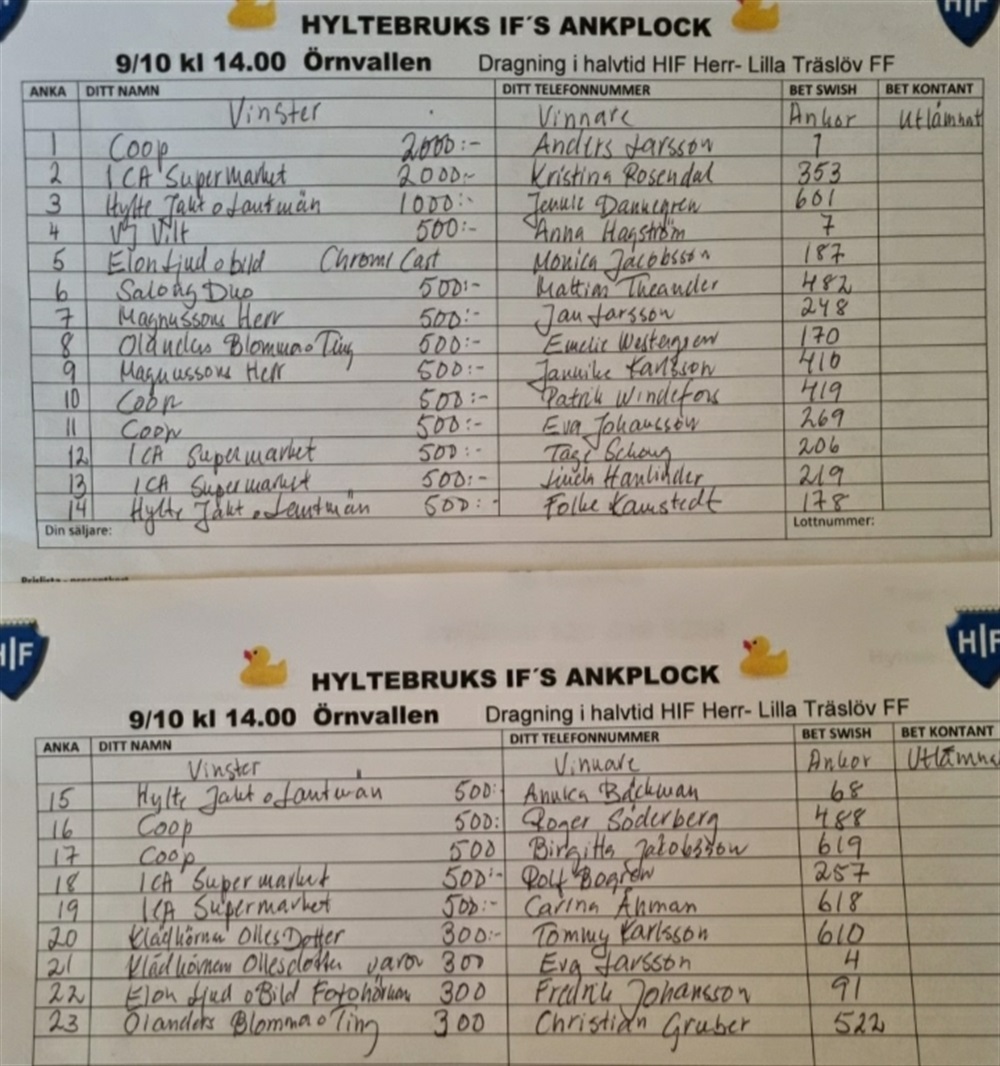 HIF
HYLTEBRUKS IF´S ANKPLOCK
9/10 kl 14.00 Örnvallen Dragning i halvtid HIF Herr- Lilla Träslöv FF
ANKA DITT NAMN DITT TELEFONNUMMER BET SWISH BET KONTANT
Vinster Vinnare Ankor Utlämnat
1 Coop 2000:- Anders Larsson 1
2 ICA Supermarket 2000:- Kristina Rosendal 353
3 Hylte Jakt o Lantmän 1000:- Jennie Dannegren 601
4 VJ Vilt 500:- Anna Hagström 7
5 Elon Ljud o bild Chrome Cast Monica Jacobsson 187
6 Salong Duo 500:- Mattias Theander 482
7 Magnussons Herr 500:- Jan Larsson 248
8 Olanders Blomma o Ting 500:- Emelie Westergren 170
9 Magnussons Herr 500:- Jannike Karlsson 410
10 Coop 500:- Patrik Windefors 419
11 Coop 500:- Eva Johansson 269
12 ICA Supermarket 500:- Tage 206
13 ICA Supermarket 500:- 219
14 Hylte Jakt o Lantmän 500:- Folke Kamstedt 178
Din säljare: Lottnummer:
H|F
H|F
HYLTEBRUKS IF´S ANKPLOCK
9/10 kl 14.00 Örnvallen Dragning i halvtid HIF Herr- Lilla Träslöv FF
ANKA DITT NAMN DITT TELEFONNUMMER BET SWISH BET KONTANT
Vinster Vinnare Ankor Utlämna
15 Hylte Jakt o Lantmän 500:- Annica Bäckman 68
16 Coop 500: Roger Söderberg 488
17 Coop 500 Birgitta Jakobsson 619
18 ICA Supermarket 500:- Rolf Bogren 257
19 ICA Supermarket 500:- Carina Åhman 618
20 Klädhörnan OllesDotter 300:- Tommy Karlsson 610
21 Klädhörnan Ollesdotter varor 300 Eva Larsson 4
22 Elon Ljud o Bild Fotohörnan 300 Fredrik Johansson 91
23 Olanders Blomma o Ting 300 Christian Gruber 522